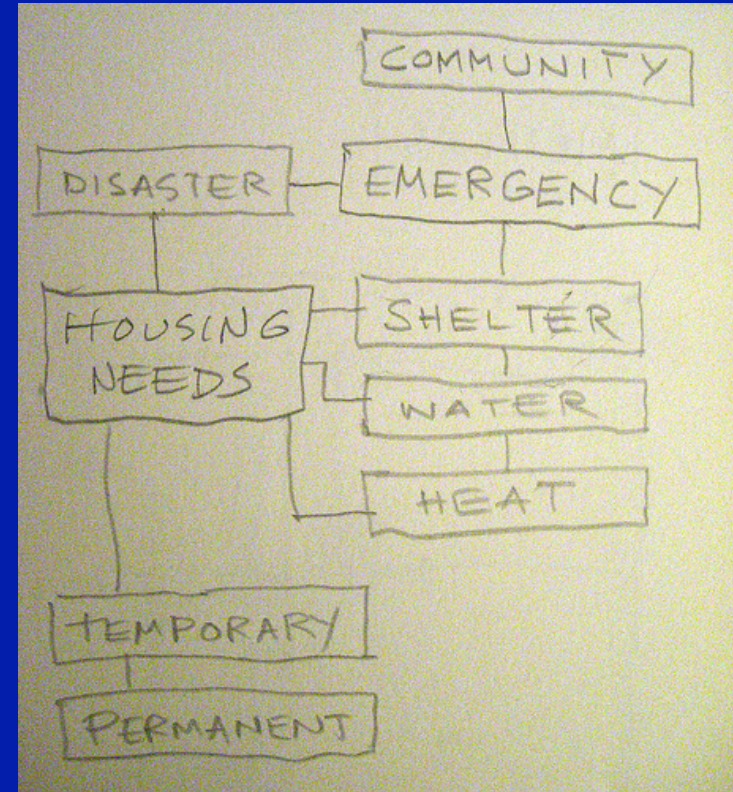 COMMUNITY
DISASTER
EMERGENCY
HOUSING
NEEDS
SHELTER
WATER
HEAT
TEMPORARY
PERMANENT